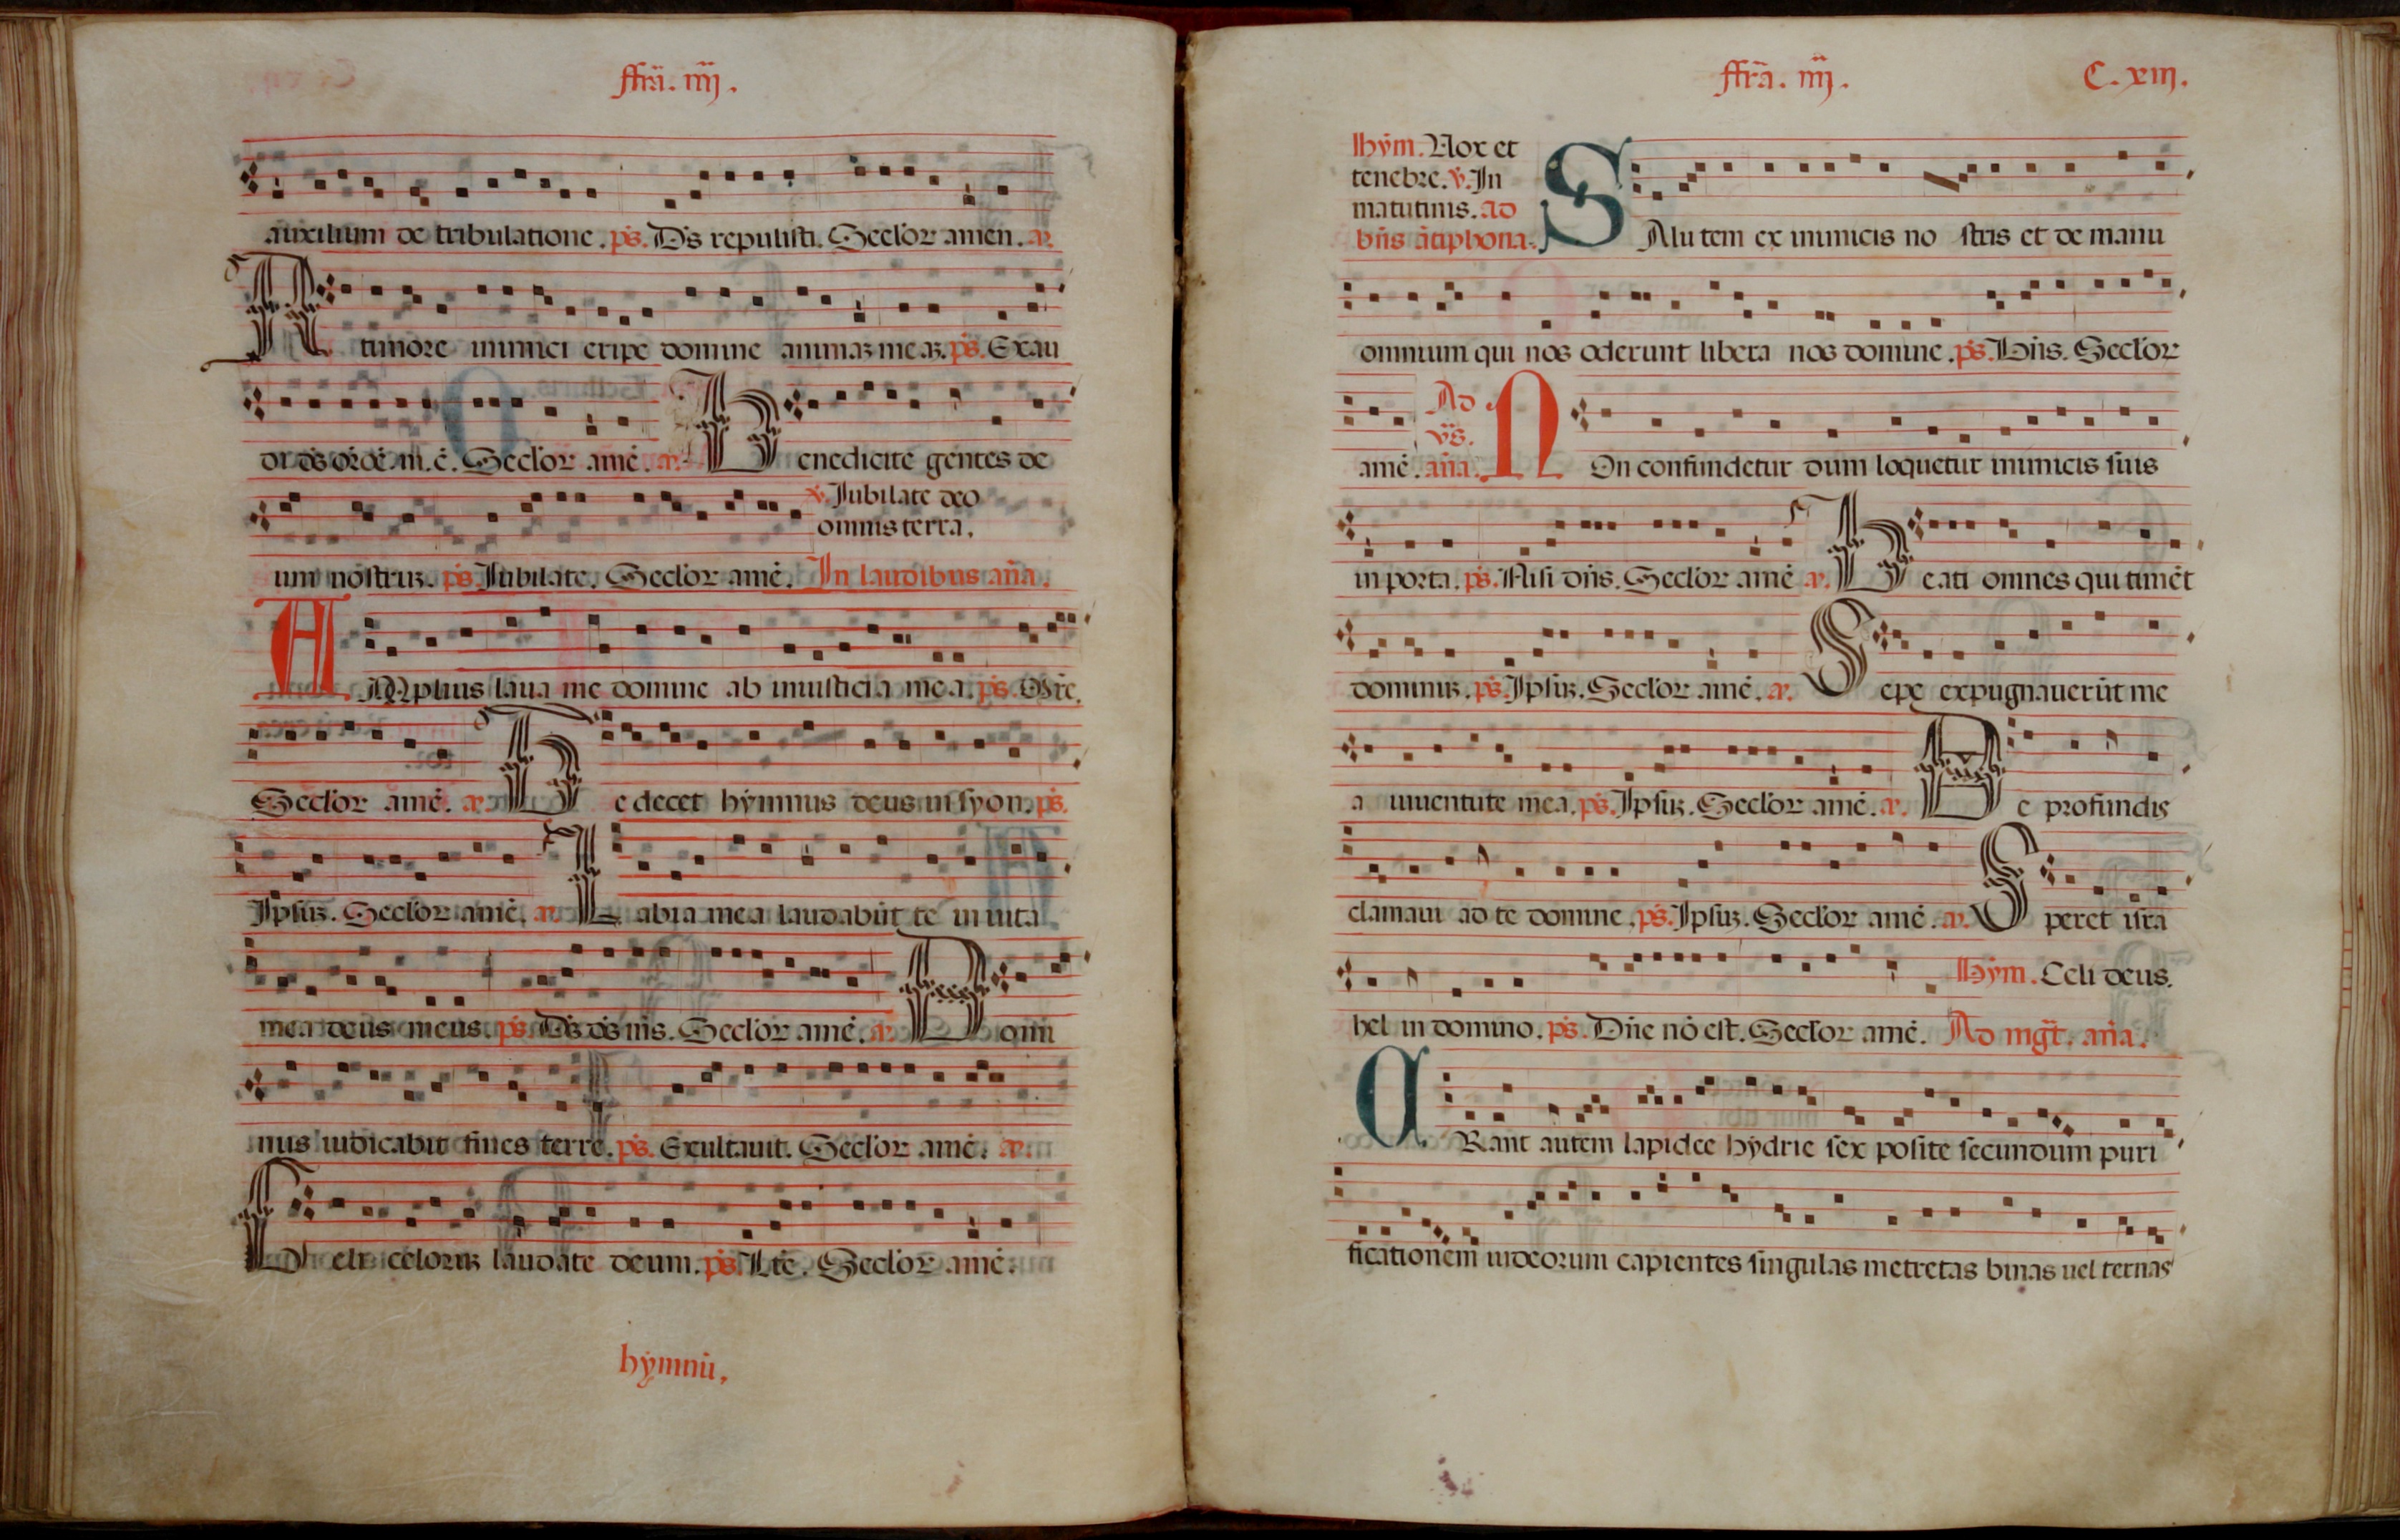 ffrã. iiij.
auxilium de tribulatione. ps. Ds repulisti. Seclor amen. a.
A timore inimici eripe domine animaz meaz. ps. Exau
di ds orõe m.e. Seclor amē. a. Benedicite gentes de
v. Jubilate deo
omnis terra.
um nostruz. ps. Jubilate. Seclor amē. In laudibus aña.
AMplius laua me domine ab iniusticia mea. ps. Misere.
Seclor amē. a. Te decet hymnus deus in syon. ps.
Ipsuz. Seclor amē. a. Labia mea laudabūt te in uita
mea deus meus. ps. Ds ds ms. Seclor amē. a. Domi
nus iudicabit fines terre. ps. Exultauit. Seclor amē. a.
Celi celoruz laudate deum. ps. Lte. Seclor amē.
hymnū,
ffrã. iiij.
C. xiij.
Hym. Nox et
tenebre. v. In
matutinis. ad
bñs ãtiphona.
SAlutem ex inimicis nostris et de manu
omnium qui nos oderunt libera nos domine. ps. Bñs. Seclor
Ad
vs.
amē. aña. NOn confundetur dum loquetur inimicis suis
in porta. ps. Nisi dñs. Seclor amē a. Beati omnes qui timēt
dominuz. ps. Ipsuz. Seclor amē. a. Sepe expugnauerūt me
a iuuentute mea. ps. Ipsuz. Seclor amē. a. De profundis
clamaui ad te domine. ps. Ipsuz. Seclor amē. a. Speret isra
Hym. Celi deus.
hel in domino. ps. Dñe nō est. Seclor amē. Ad mgt. aña.
ERant autem lapidee hydrie sex posite secundum puri
ficationem iudeorum capientes singulas metretas binas uel ternas